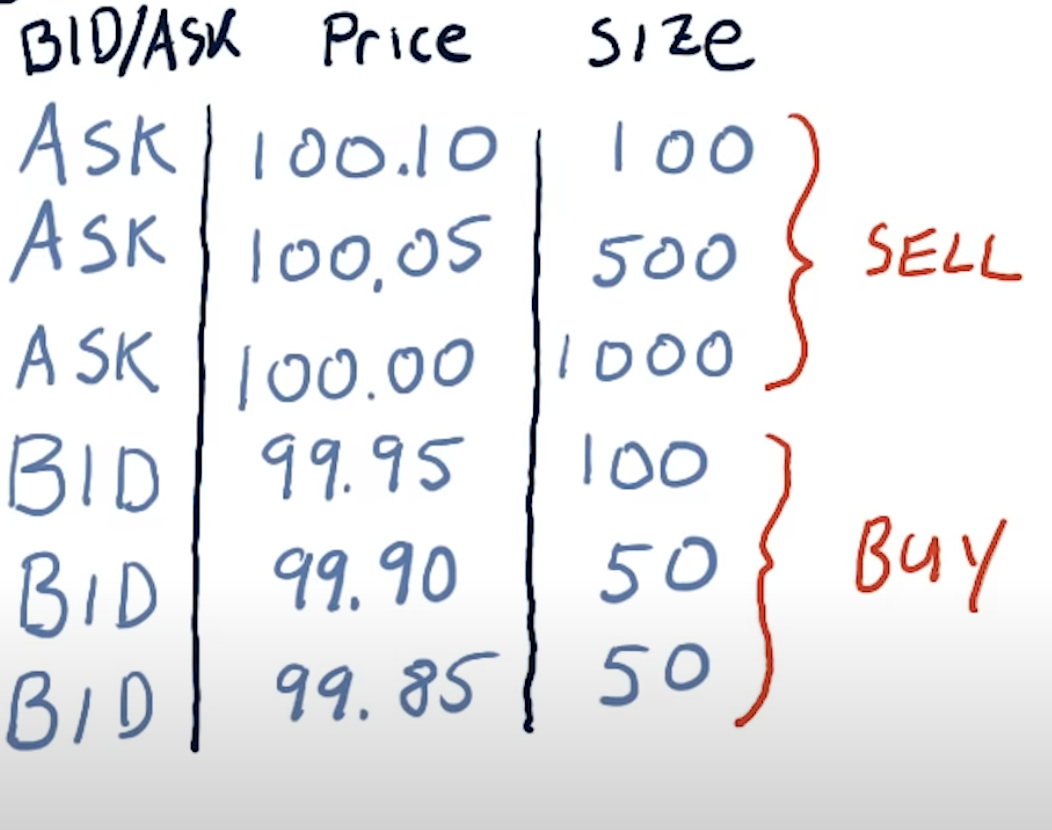 BID/ASK Price SIZE
ASK 100.10 100
ASK 100,05 500
SELL
ASK 100.00 1000
BID 99.95 100
BID 99.90 50
BUY
BID 99.85 50